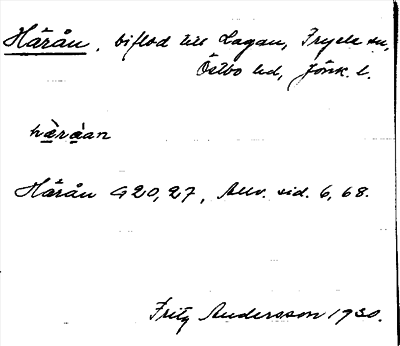 Härån, biflod till Lagan, Tryde sn,
Östbo hd, Jönk. l.
hä̀rä̀an
Härån G20,27, Alw. sid. 6, 68.
Fritz Andersson 1930.